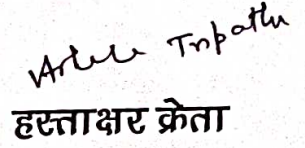 Tripathi
हस्ताक्षर क्रेता